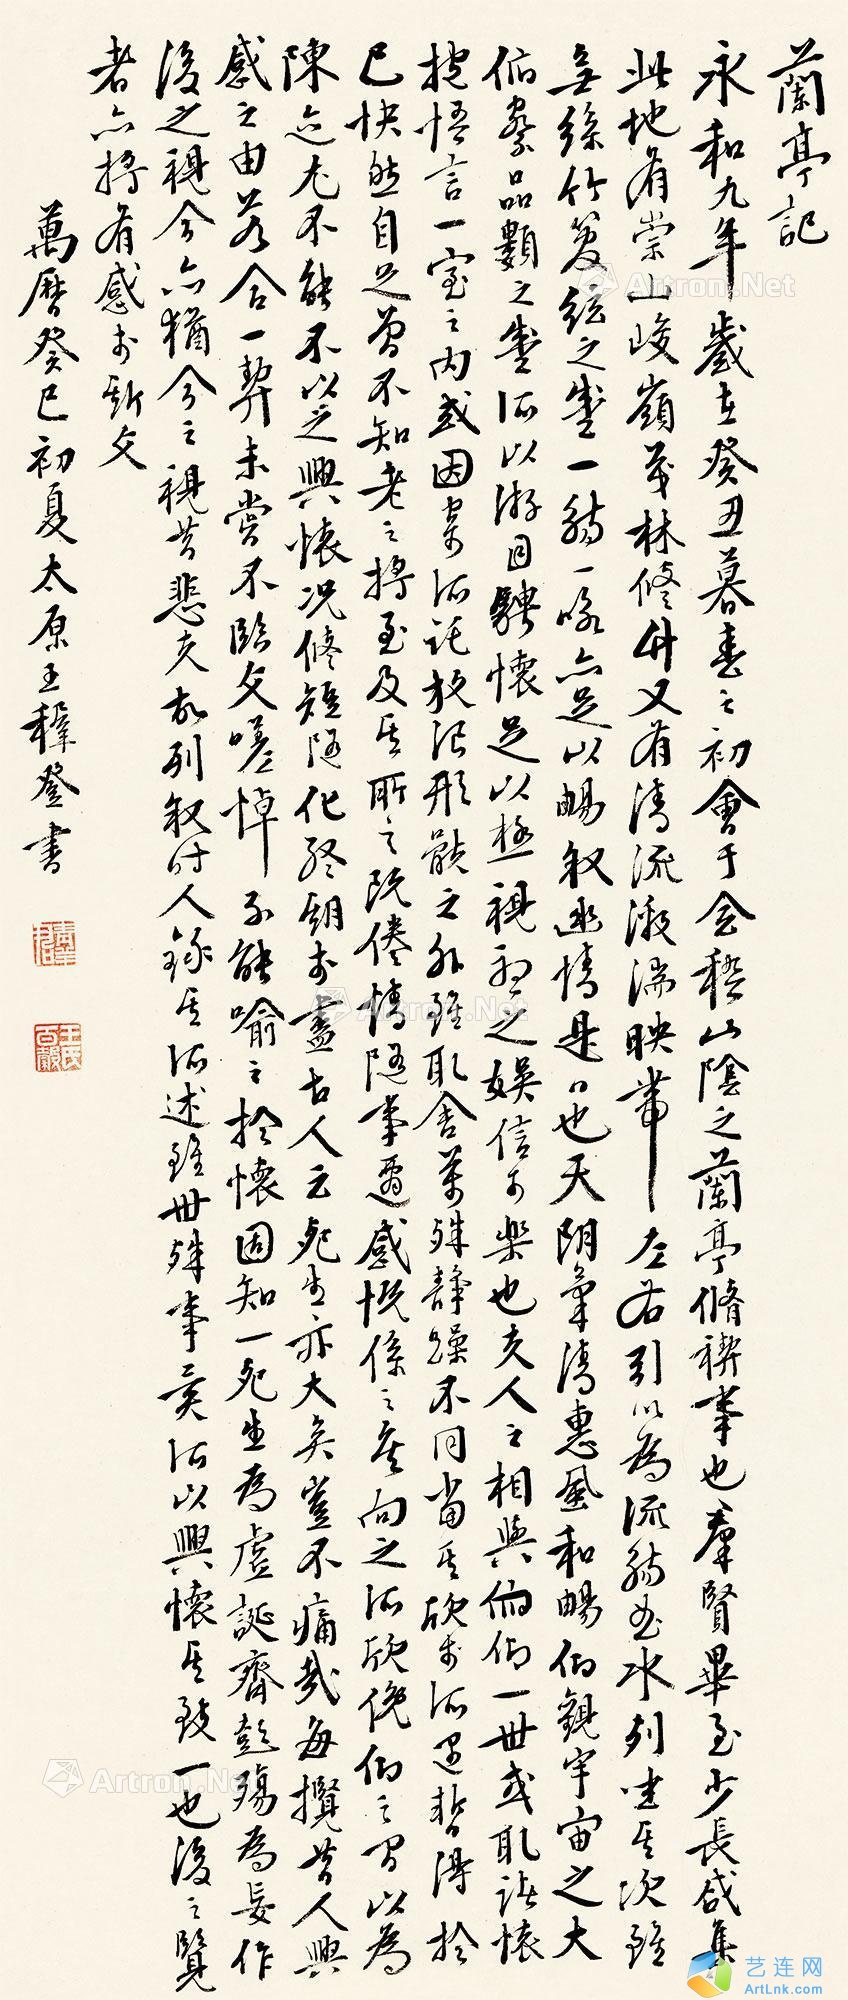 蘭亭記
永和九年歲在癸丑暮春之初會于會稽山陰之蘭亭脩禊事也羣賢畢至少長咸集
此地有崇山峻嶺茂林修竹又有清流激湍映帶左右引以為流觴曲水列坐其次雖
無絲竹管絃之盛一觴一詠亦足以暢叙幽情是日也天朗氣清惠風和暢仰觀宇宙之大
俯察品類之盛所以游目騁懷足以極視聽之娛信可樂也夫人之相與俯仰一世或取諸懷
抱悟言一室之內或因寄所託放浪形骸之外雖取舍萬殊靜躁不同當其欣於所遇暫得於
己快然自足曾不知老之將至及其所之既倦情隨事遷感慨係之矣向之所欣俛仰之間以為
陳迹尤不能不以之興懷況修短隨化終期於盡古人云死生亦大矣豈不痛哉每攬昔人興
感之由若合一契未嘗不臨文嗟悼不能喻之於懷固知一死生為虛誕齊彭殤為妄作
後之視今亦猶今之視昔悲夫故列叙時人錄其所述雖世殊事異所以興懷其致一也後之覽
者亦將有感於斯文
萬曆癸巳初夏太原王穉登書
王氏百穀
Artron.Net
Artron.Net
Artron.Net
Artron.Net
艺连网
ArtLnk.com